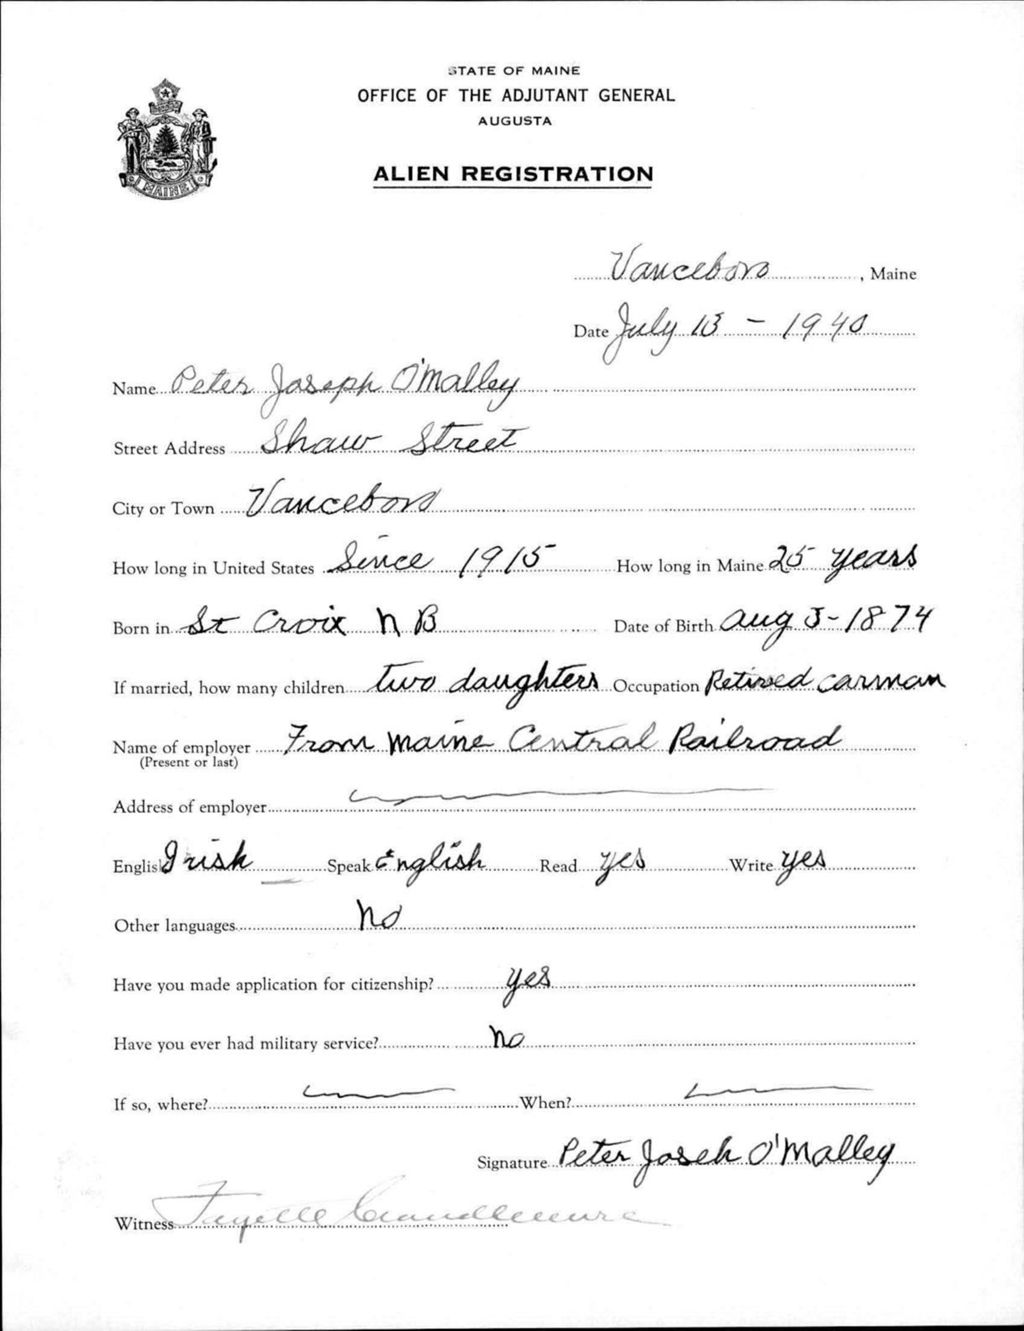 STATE OF MAINE
OFFICE OF THE ADJUTANT GENERAL
AUGUSTA
ALIEN REGISTRATION
MAINE
Vanceboro, Maine
Date July 13 - 1940
Name Peter Joseph O'Malley
Street Address Shaw Street
City or Town Vanceboro
How long in United States Since 1915 How long in Maine 25 years
Born in St Croix N B Date of Birth Aug 5-1874
If married, how many children two daughters Occupation Retired carman
Name of employer From Maine Central Railroad
(Present or last)
Address of employer
Englis Irish Speak English Read yes Write yes
Other languages No
Have you made application for citizenship? yes
Have you ever had military service? No
If so, where? When?
Signature Peter Joseh O'Malley
Witness